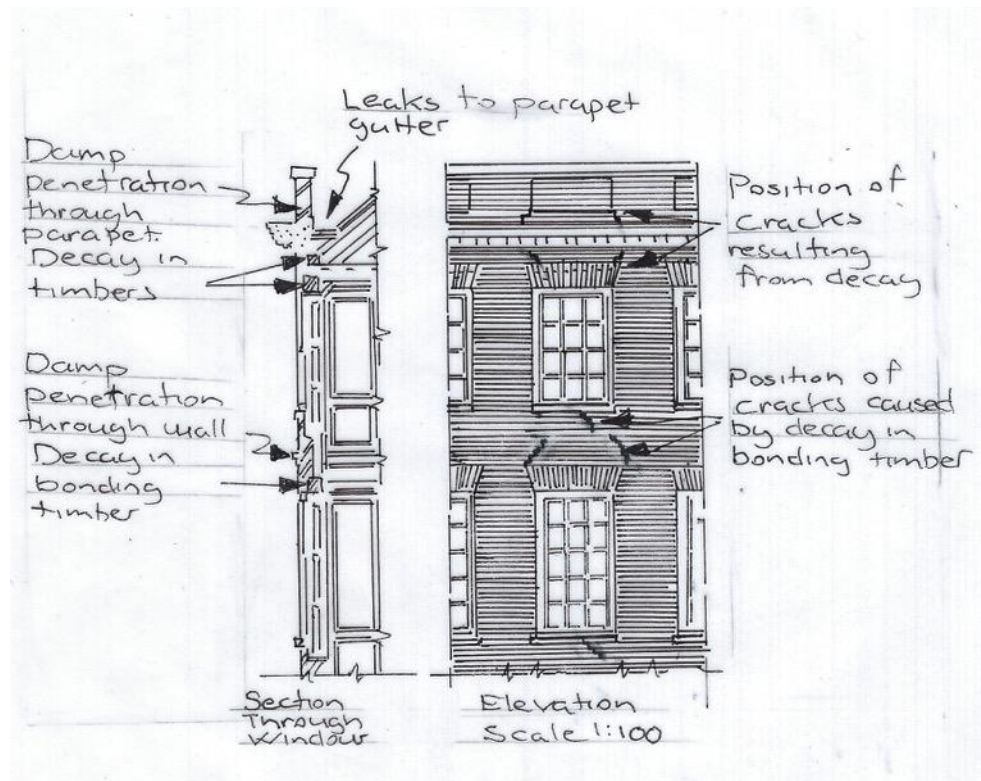 Leaks to parapet
gutter
Damp
penetration
through
parapet.
Decay in
timbers
Damp
penetration
through wall
Decay in
bonding
timber
Position of
cracks
resulting
from decay
Position of
cracks caused
by decay in
bonding timber
Section
Through
Window
Elevation
Scale 1:100